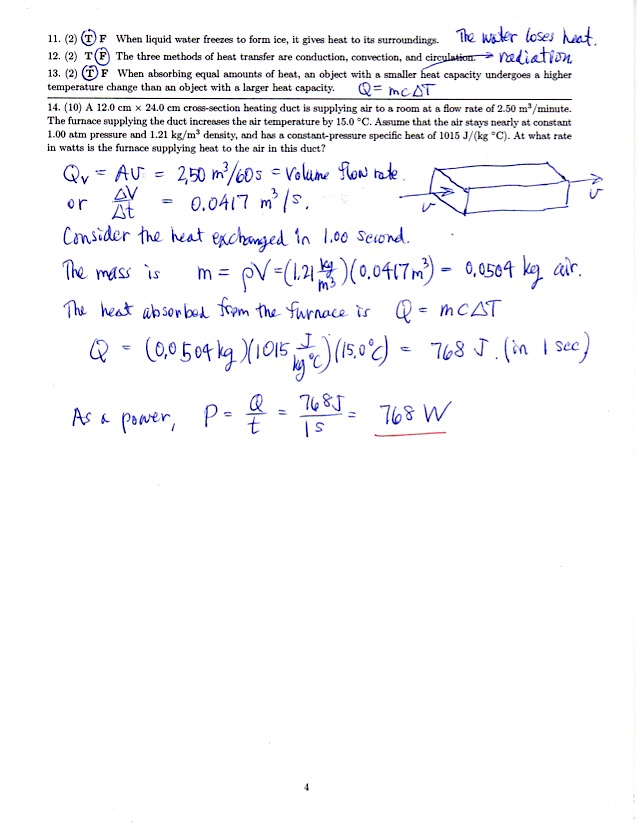 11. (2) T F When liquid water freezes to form ice, it gives heat to its surroundings. The water loses heat.
12. (2) T F The three methods of heat transfer are conduction, convection, and circulation. → radiation
13. (2) T F When absorbing equal amounts of heat, an object with a smaller heat capacity undergoes a higher
temperature change than an object with a larger heat capacity. Q = mcΔT
14. (10) A 12.0 cm × 24.0 cm cross-section heating duct is supplying air to a room at a flow rate of 2.50 m³/minute.
The furnace supplying the duct increases the air temperature by 15.0 °C. Assume that the air stays nearly at constant
1.00 atm pressure and 1.21 kg/m³ density, and has a constant-pressure specific heat of 1015 J/(kg °C). At what rate
in watts is the furnace supplying heat to the air in this duct?
Qv = Av = 2,50 m³/60s = Volume flow rate.
or ΔV/Δt = 0.0417 m³/s.
v v
Consider the heat exchanged in 1.00 second.
The mass is m = ρV = (1.21 kg/m³)(0,0417 m³) = 0,0504 kg air.
The heat absorbed from the furnace is Q = mcΔT
Q = (0,0504 kg)(1015 J/kg°C)(15,0°C) = 768 J. (in 1 sec)
As a power, P = Q/t = 768J/1s = 768 W
4